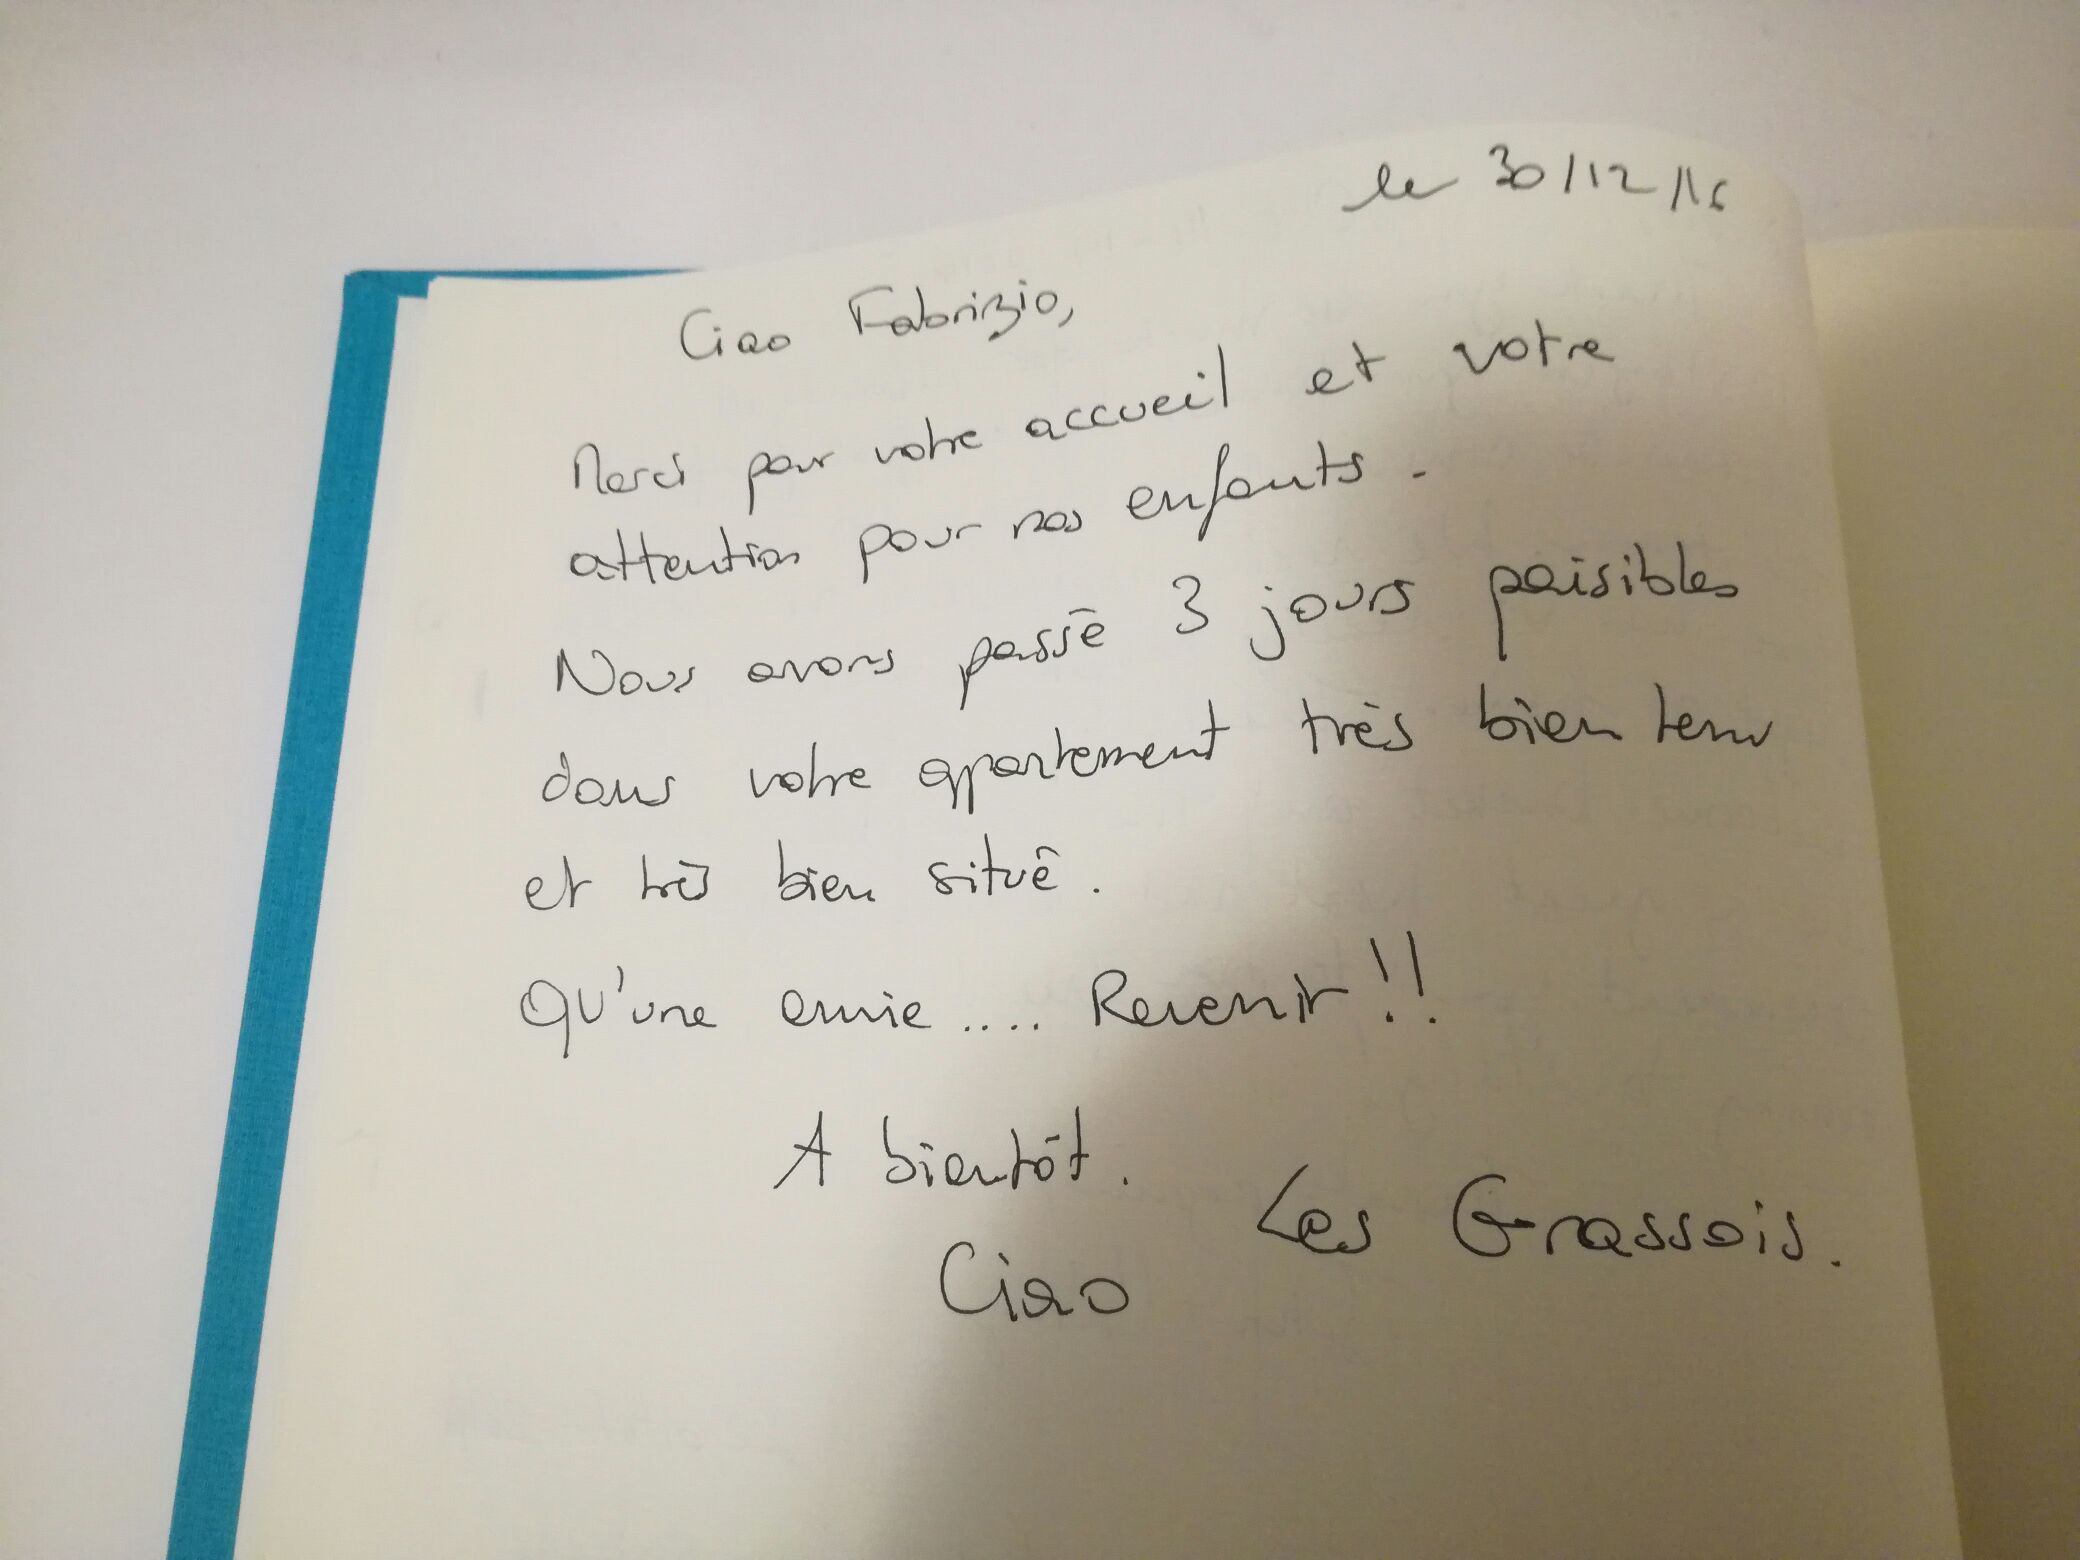 le 30/12/16
Ciao Fabrizio,
Merci pour votre accueil et votre
attention pour nos enfants.
Nous avons passé 3 jours paisibles
dans votre appartement très bien tenu
et très bien situé.
QU'une envie .... Revenir !!
A bientôt.
Les Grassois.
Ciao